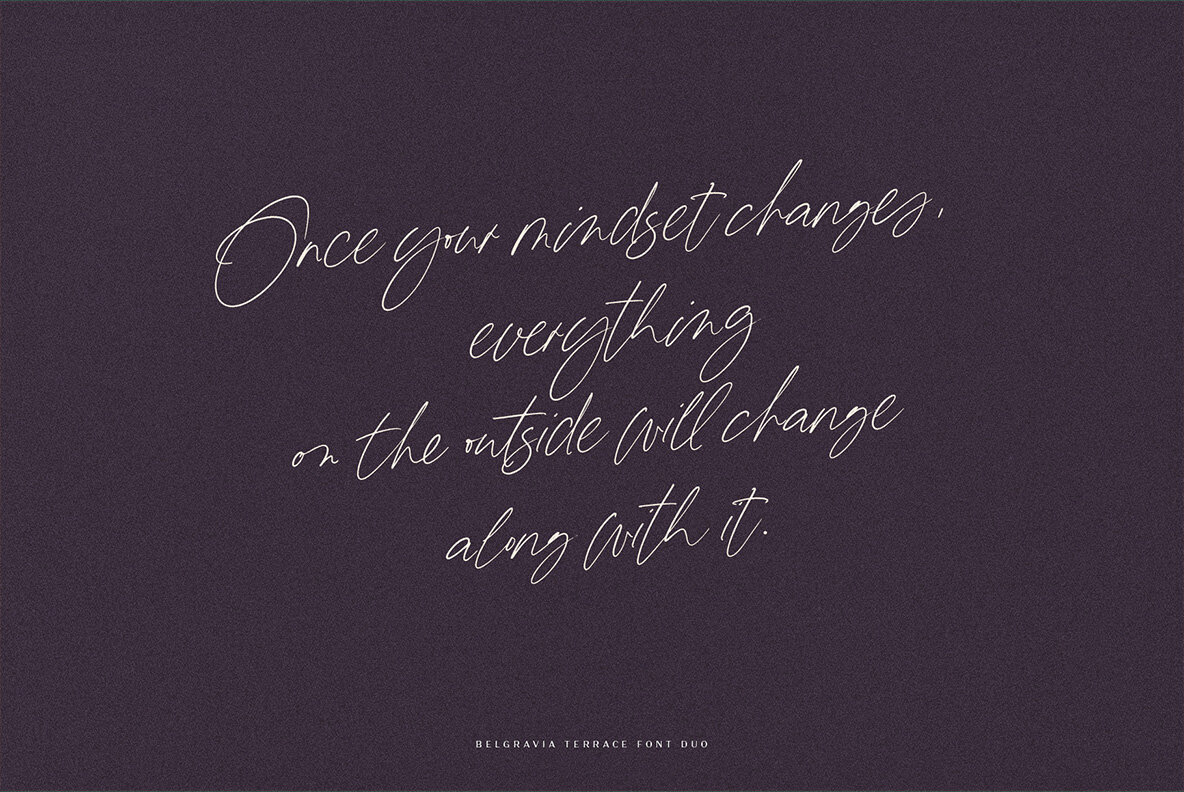 Once your mindset changes,
everything
on the outside will change
along with it.
BELGRAVIA TERRACE FONT DUO